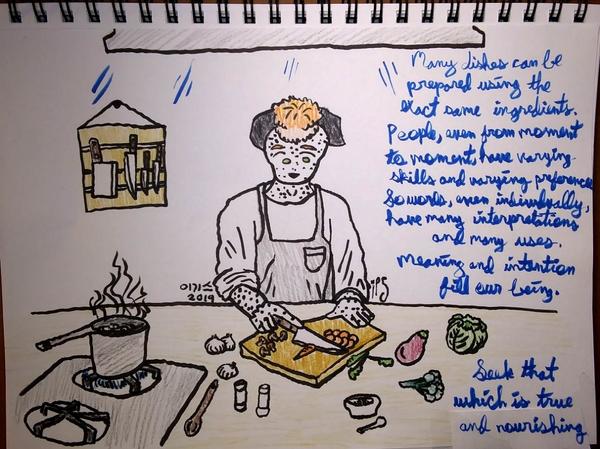 Many dishes can be
prepared using the
exact same ingredients.
People, even from moment
to moment, have varying
skills and varying preferences
So words, even individually,
have many interpretations
and many uses.
Meaning and intention
fill our being.
2019
Seek that
which is true
and nourishing